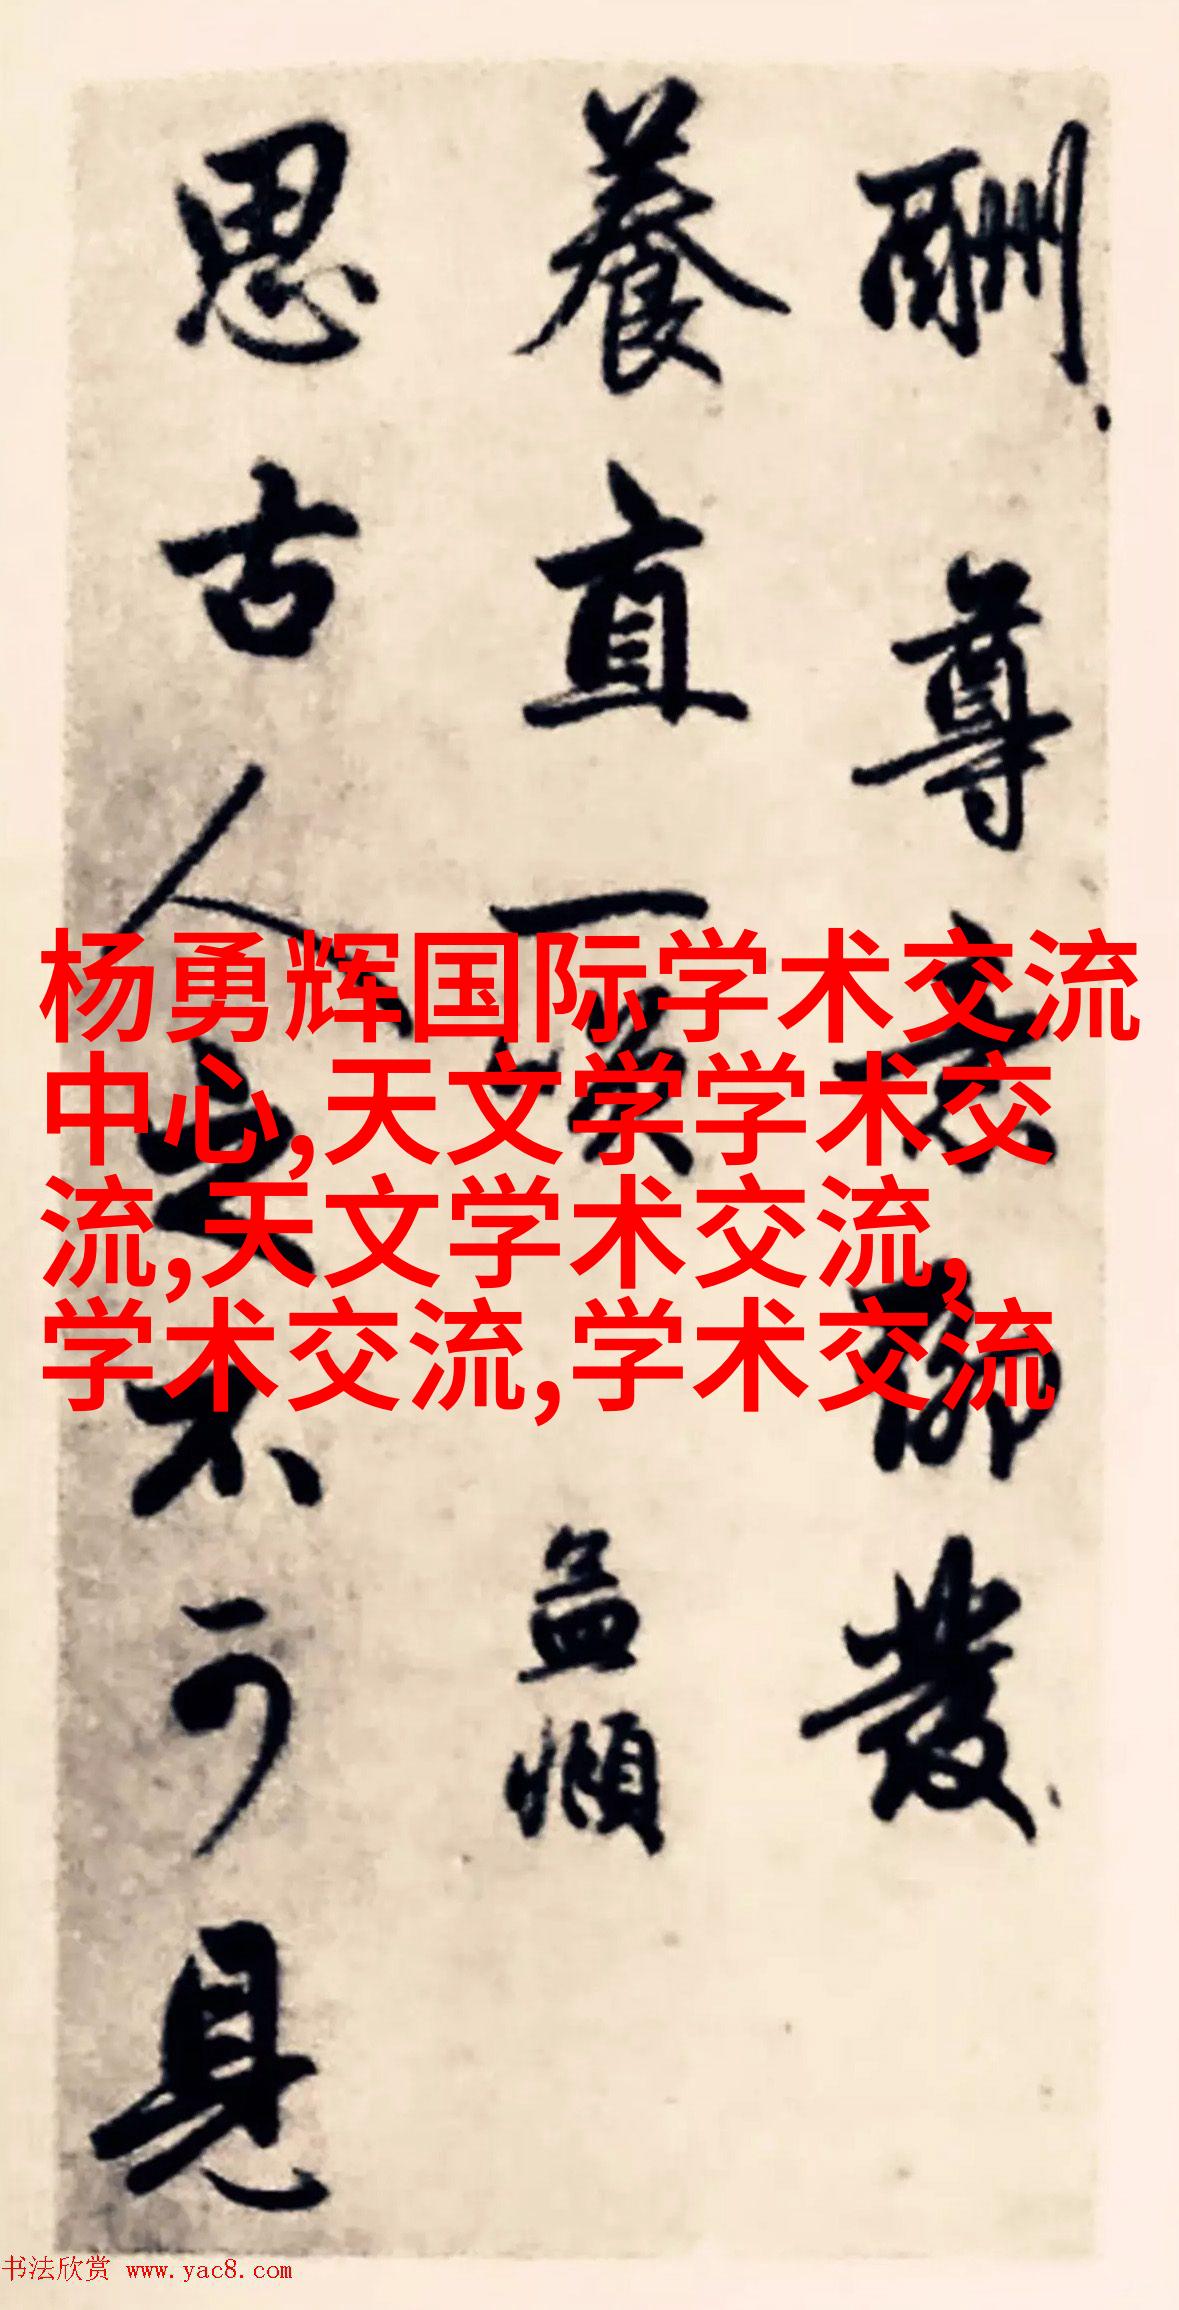 酬尊意聊發
養直一噱 益順
思古人而不可見
杨勇辉国际学术交流
中心,天文学学术交
流,天文学术交流,
学术交流,学术交流
书法欣赏 www.yac8.com